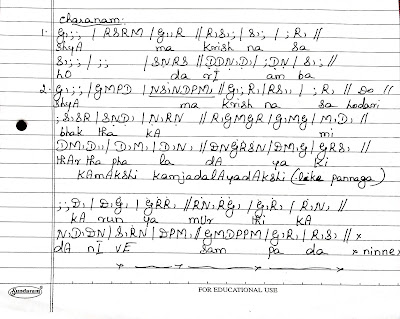 Charanam:
1. G;;; | RSRM | G;;R || R;S; | S;; | ; R; ||
ShyA ma krish na sa
S;;; | ;; | SNRS || DDN,D; | ; DN | S;; ||
hO da rI am ba
2. G;;; | GMPD | NSNDPM, || G;; R; | RS;; | ; R; || DO ||
ShyA ma krish na sa hodari
; SSR | SND; | N;RN || RGMGR | G;MG | M;D; ||
bhak tha kA mi
DM,D;; | D;M; | D;N; || DNGRSN | DM;G | GRS; ||
thAr tha pha la dA ya ki
KAmAkshi KamjadalAyadAkshi (like pannaga)
; ; D; | D;G; | GRR; || RN;RG; | G;R; | R;N; ||
kA run ya mUr thi kA
N;D;DN | S;RN | DPM; || GMDPPM | G;R; | R;S; || ×
dA nI VE sam pa da × ninne
Sundaram
FOR EDUCATIONAL USE